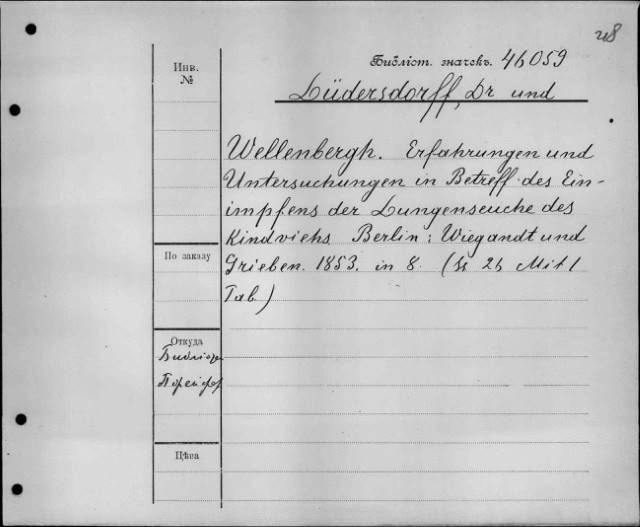 218
Инв.
№
Библіот. значекъ. 46059
Lüdersdorff, Dr und
Wellenbergh. Erfahrungen und
Untersuchungen in Betreff des Ein-
impfens der Lungenseuche des
Rindviehs Berlin: Wiegandt und
Grieben. 1853. in 8. (S. 26 Mit 1
Tab.)
По заказу
Откуда
Цѣна